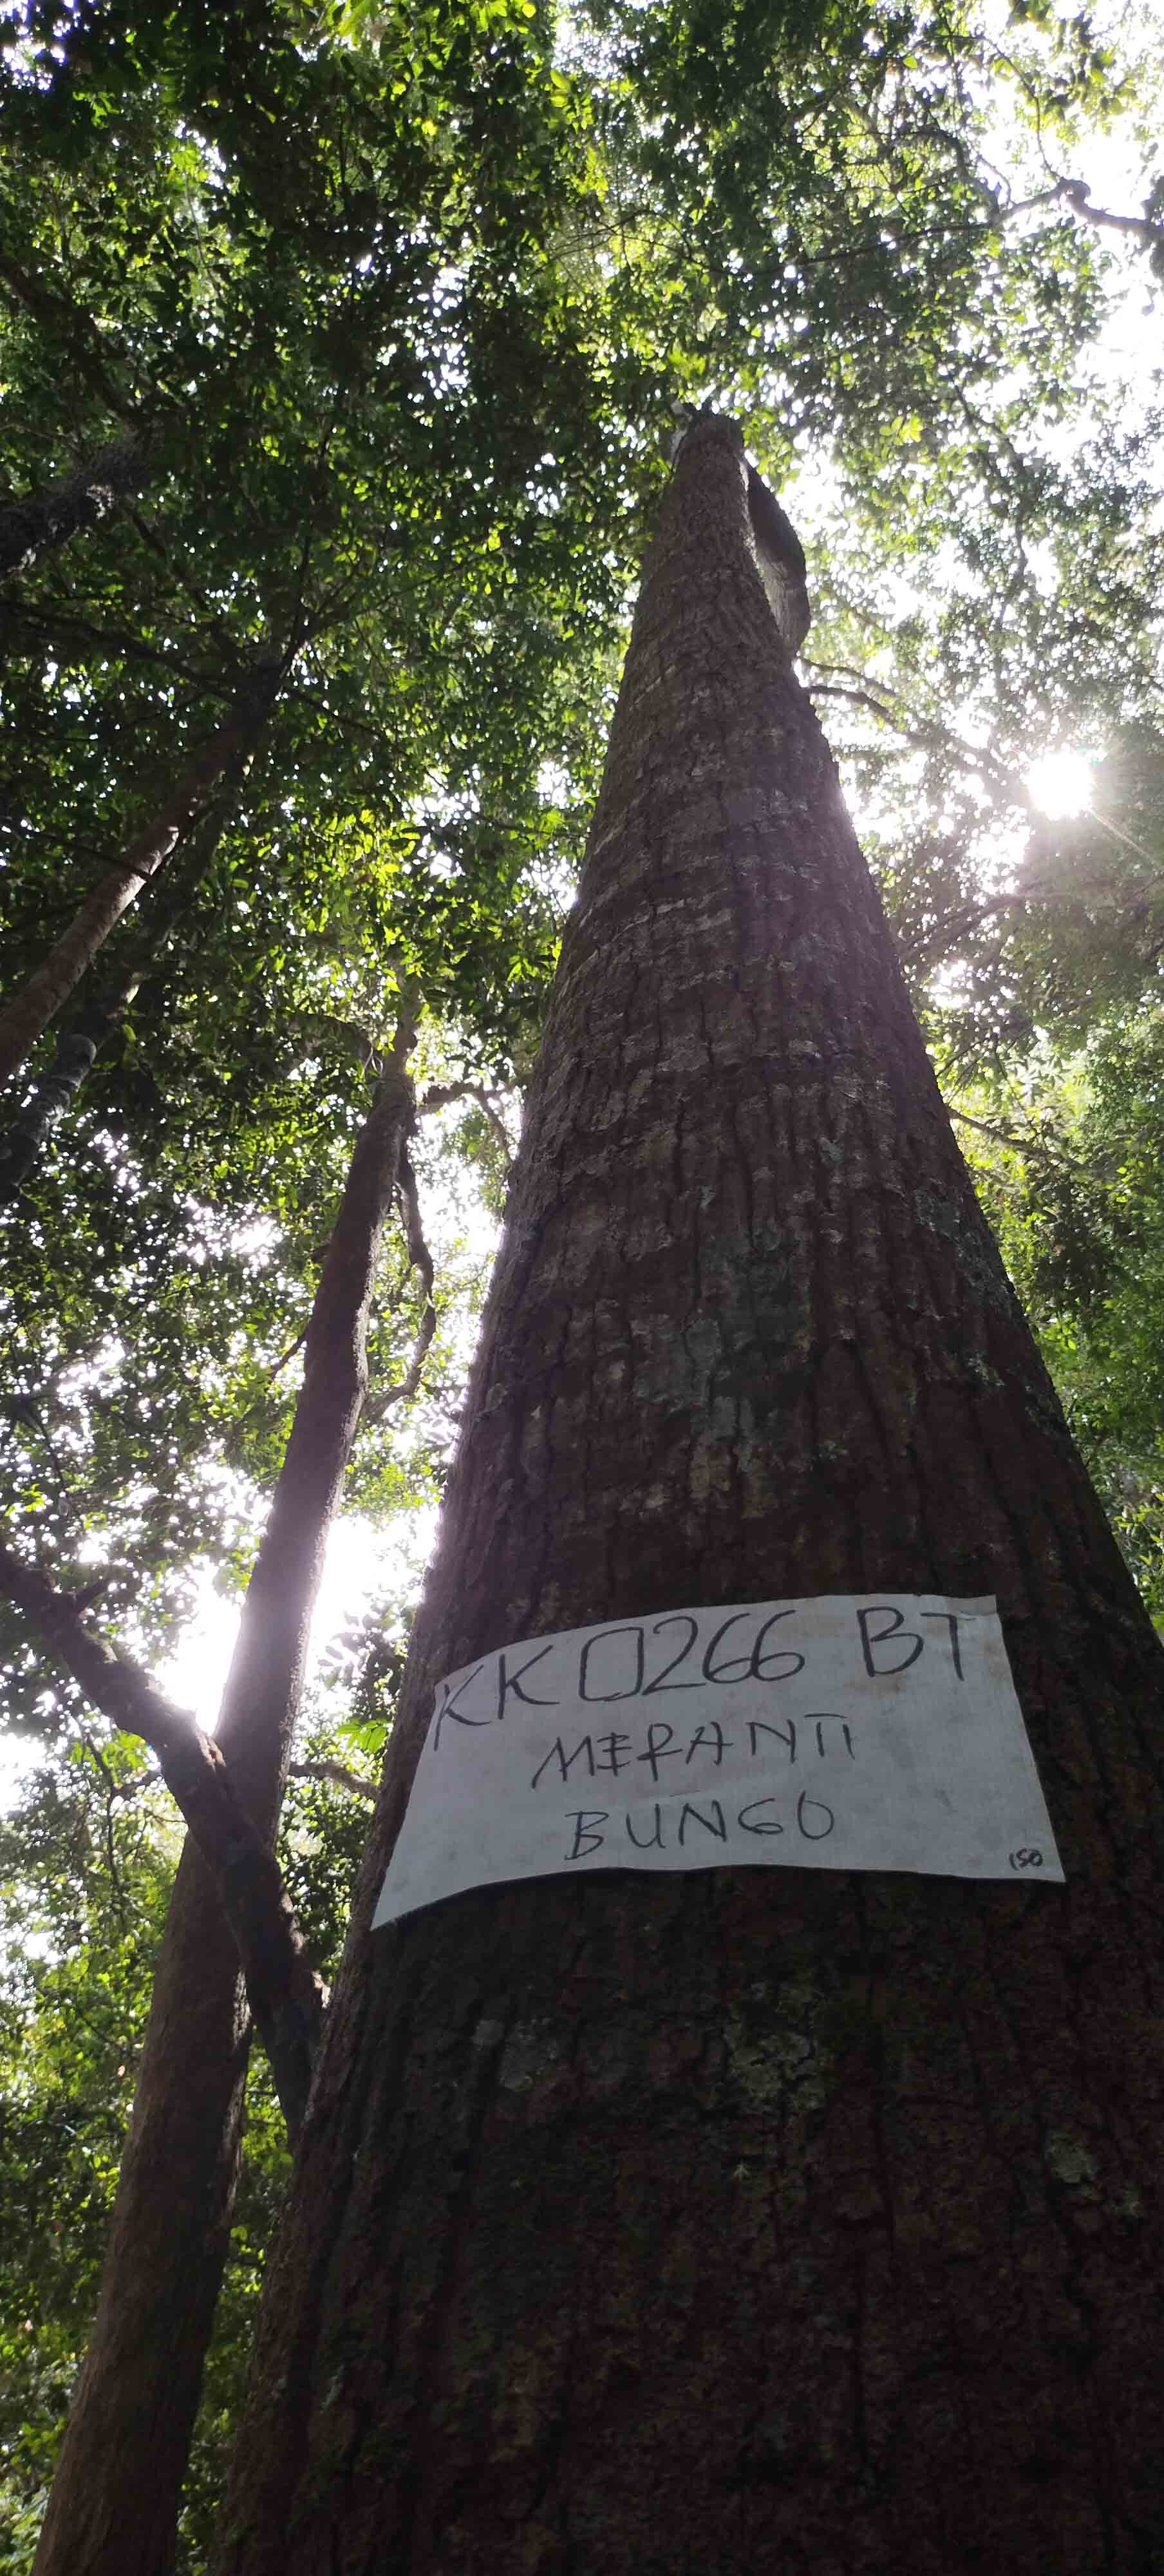 KK 0266 BT
MERANTI
BUNGO
150